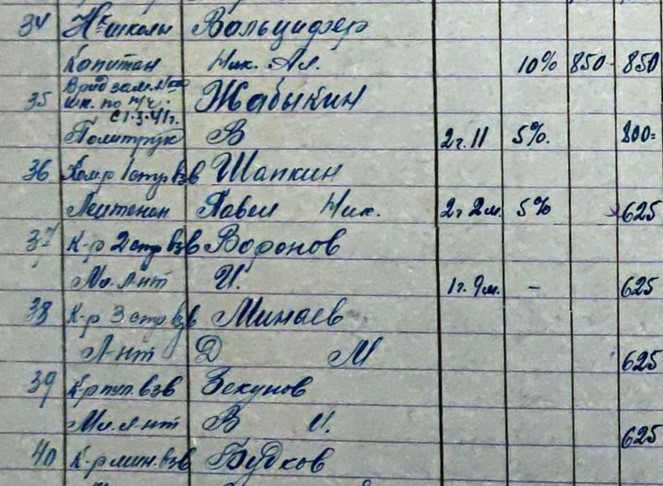 34 Нк школы Вальцифер
Капитан Ник. Ал. 10% 850 850
Врид зам. Нач
35 шк. по п/ч. Жабыкин
с 1.3.41г.
Политрук В 2г. 11 5%. 800=
36 Ком-р 1 стр. взв Шапкин
Лейтенан Павел Ник. 2г 2м. 5% 625
37 К-р 2 стр взв Воронов
Мл. л-нт И. 1г. 9м. - 625
38 К-р 3 стр взв Минаев
Л-нт Д М 625
39 К-р пул. взв Зекунов
Мл. л-нт В И. 625
40 К-р мин. взв Будков